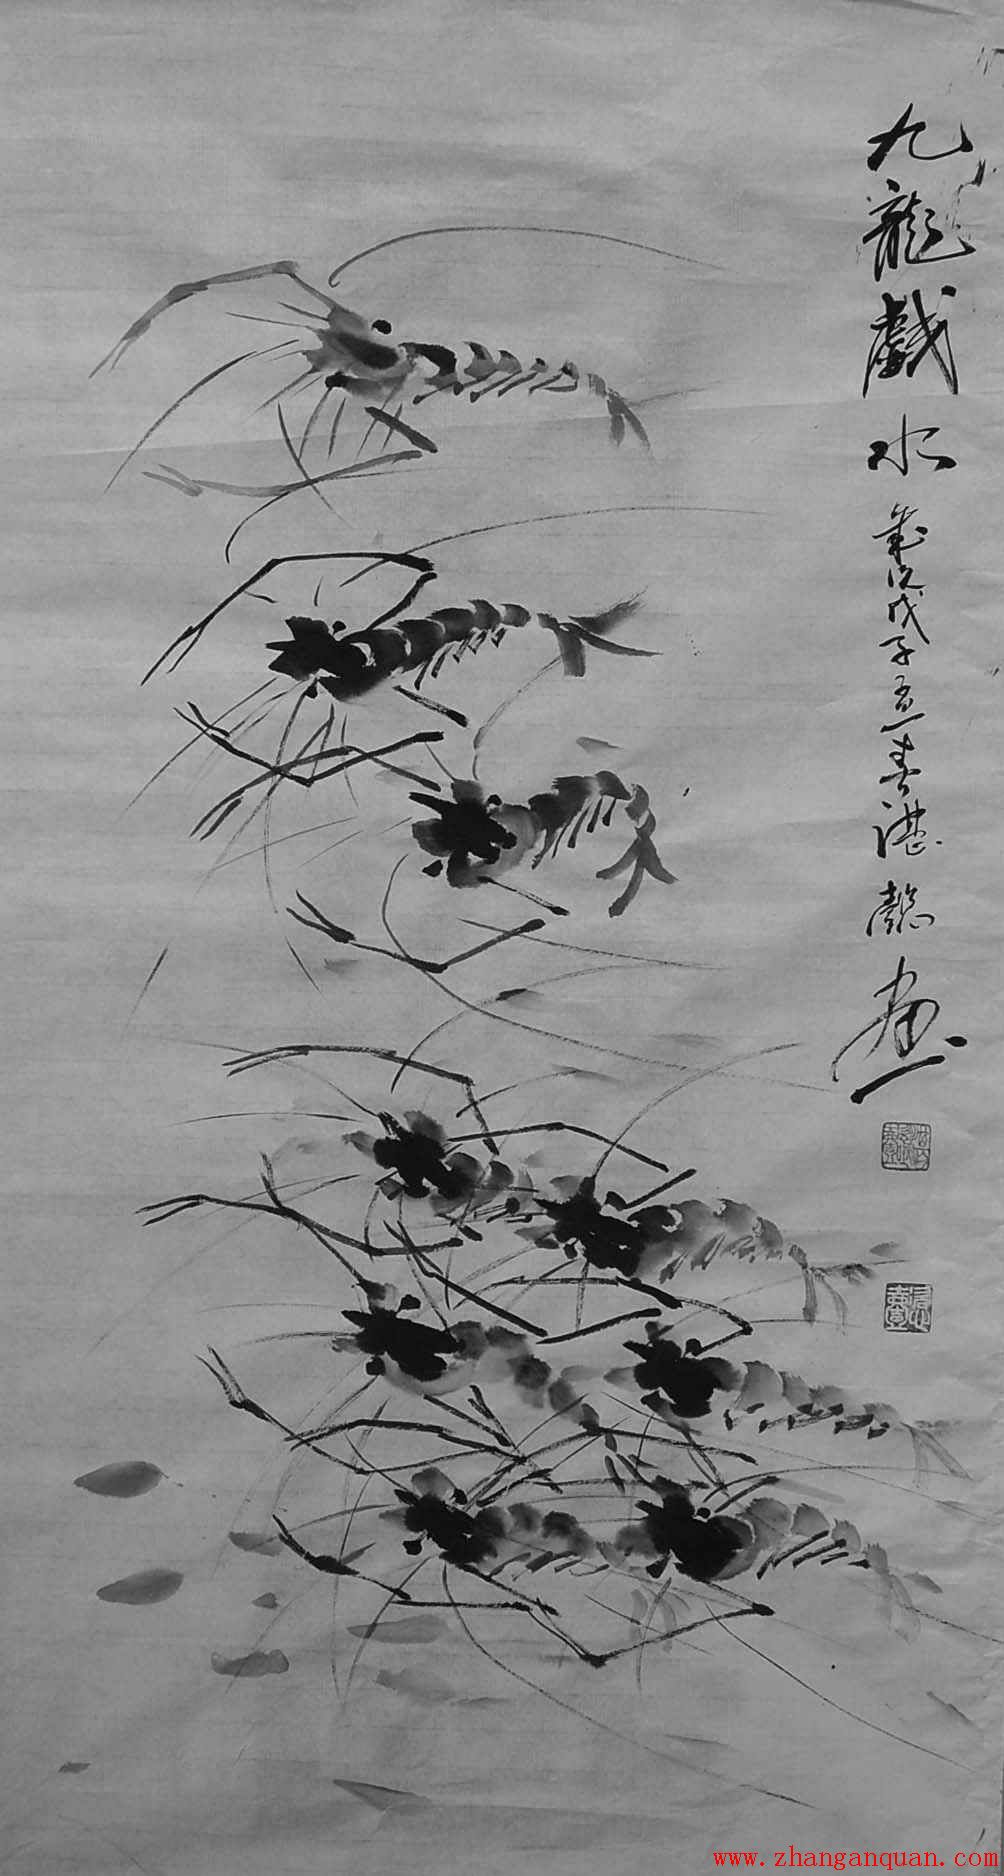 九龍戲水
歲次戊子孟春湛懿画
www.zhanganquan.com